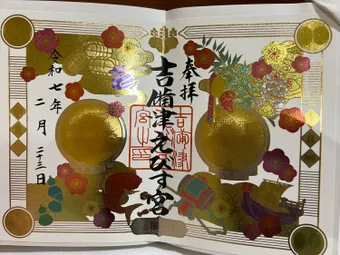 奉拝
吉備津えびす宮
令和七年二月二十三日